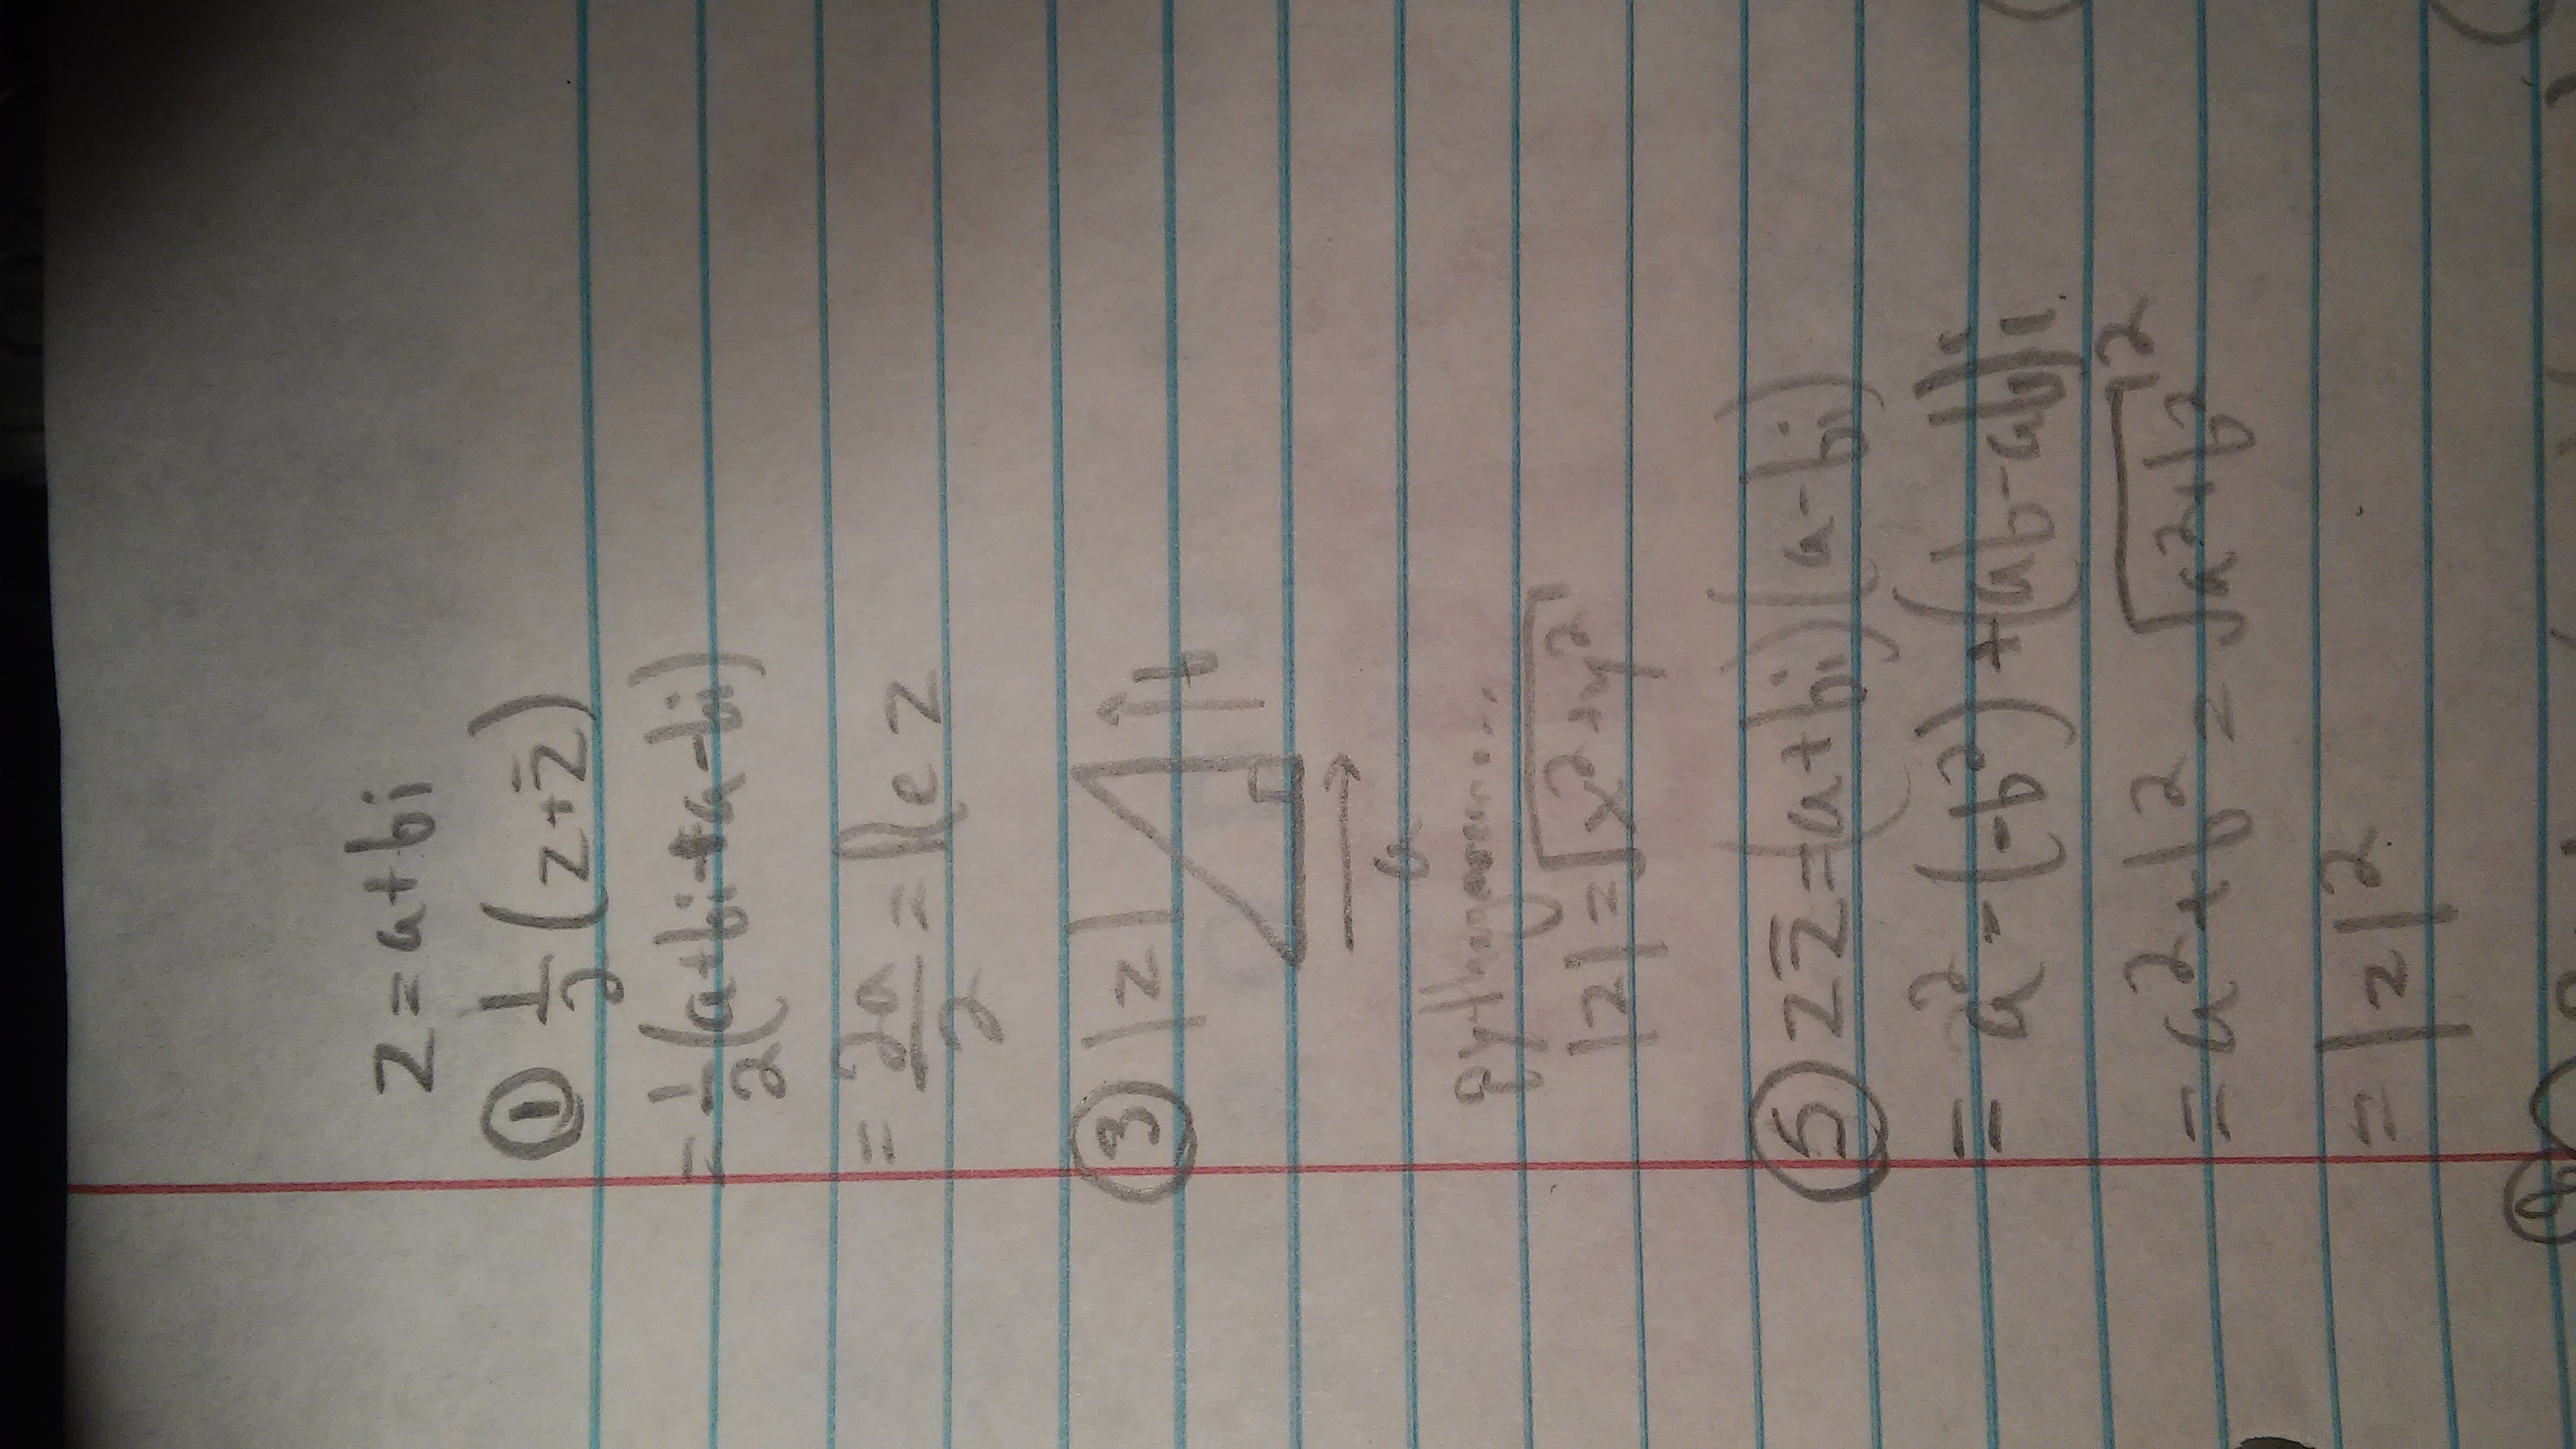 z = a+bi
① 1/2 (z+z̄)
= 1/2 (a+bi+a-bi)
= 2a/2 = Re z
③ |z| b
a
pythagorean...
|z| = √(x²+y²)
⑤ z z̄ = (a+bi)(a-bi)
= a² - (-b²) + (ab-ab)i
= a²+b² = √(a²+b²)²
= |z|²